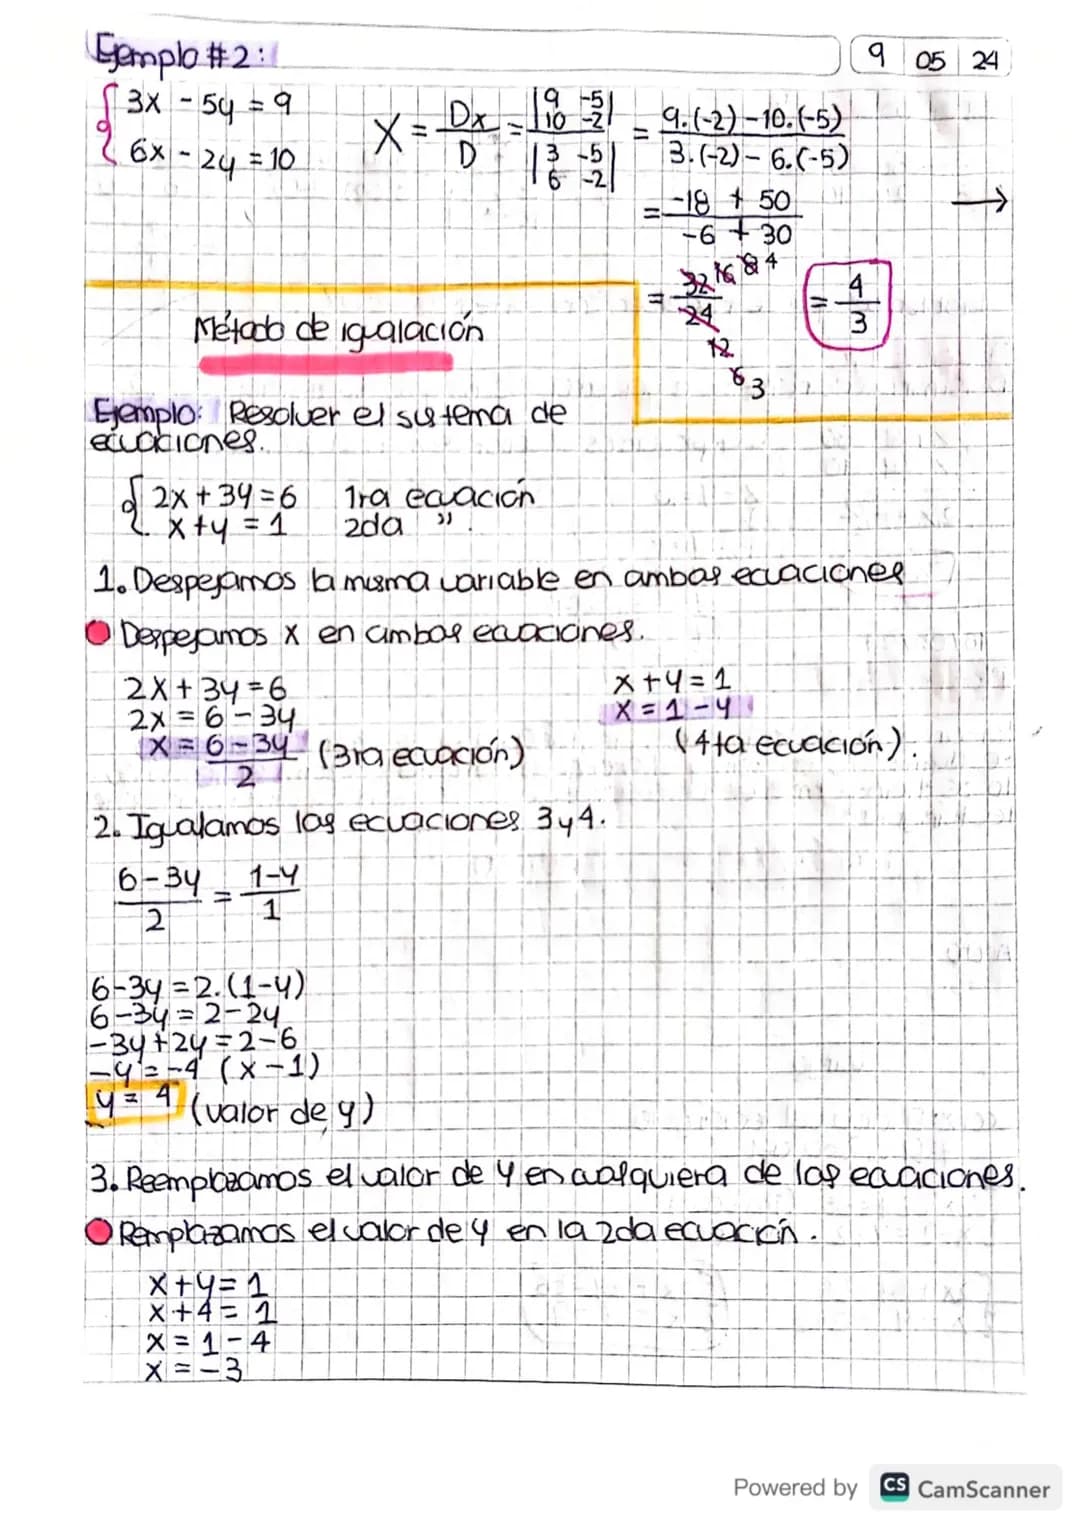 Ejemplo #2:
9 05 24
3x - 5y = 9
6x - 2y = 10
X = Dx / D = |9 -5 10 -2| / |3 -5 6 -2| = 9.(-2) - 10.(-5) / 3.(-2) - 6.(-5)
= -18 + 50 / -6 + 30
→
= 32 16 8 4 / 24 12 6 3 = 4/3
Método de igualación
Ejemplo: Resolver el sistema de
ecuaciones.
2x + 3y = 6 1ra ecuación
x + y = 1 2da ".
1. Despejamos la misma variable en ambas ecuaciones
Despejamos x en ambas ecuaciones.
2x + 3y = 6
2x = 6 - 3y
x = 6 - 3y / 2 (3ra ecuación)
x + y = 1
x = 1 - y
(4ta ecuación).
2. Igualamos las ecuaciones 3 y 4.
6 - 3y / 2 = 1 - y / 1
6 - 3y = 2.(1 - y)
6 - 3y = 2 - 2y
-3y + 2y = 2 - 6
-y = -4 (x - 1)
y = 4 (valor de y)
3. Reemplazamos el valor de y en cualquiera de las ecuaciones.
Remplazamos el valor de y en la 2da ecuación.
x + y = 1
x + 4 = 1
x = 1 - 4
x = -3
Powered by CS CamScanner